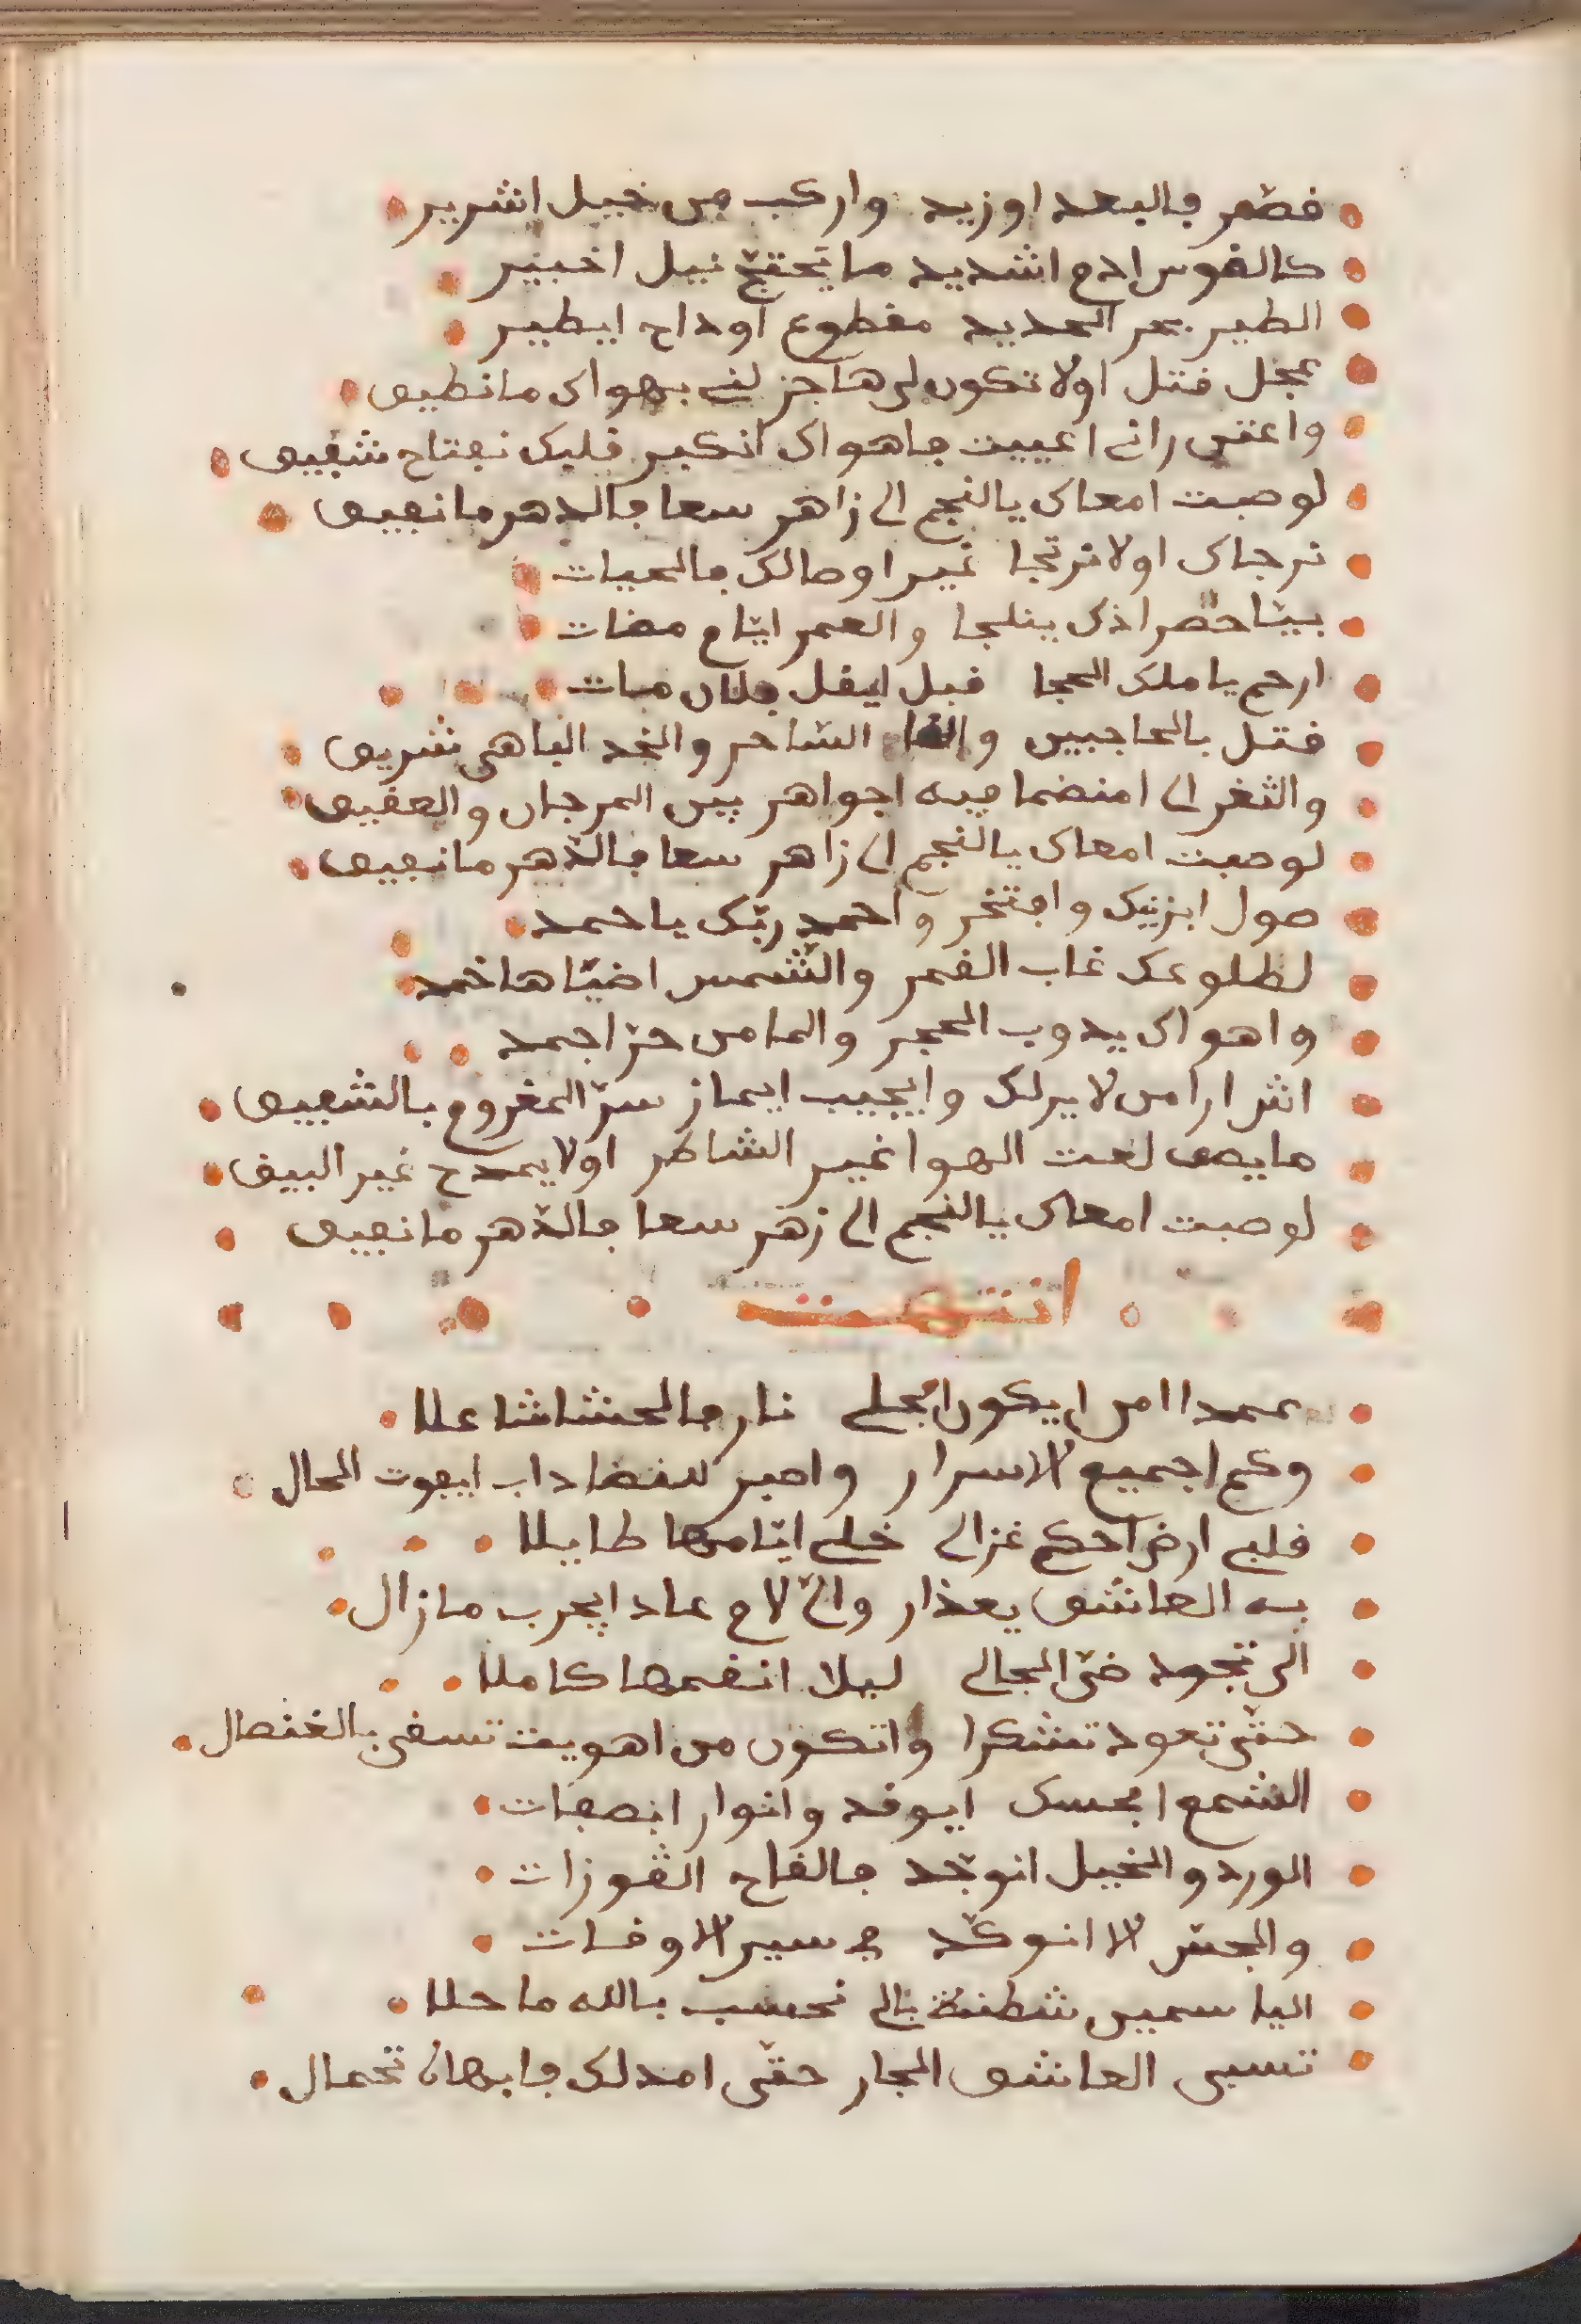 فصّر بالبعد اوزيد واركب من خيل اشرير
كالقوس ادم اشديد ما يحتج نيل اخبير
الطير بحر الحديد مقطوع اوداج ايطير
عجل قتل اولا تكون لي هاجز لني بهواك ما نطيق
واعتق راني اعييت فاهواك انكبر قلبك نفتاح شفيق
لو صبت امعاك يالنجم الي زاهر سعا فالدهر ما نفيق
نرجاك اولا نرتجا غير اوصالك فالحيات
بيتا حصراذك ينلجا والعمر ايّام مضات
ارحم يا ملك الحجا قبل ايقل فلان مات
قتل بالحاجبين و الساحر والخد الباهي شريق
والثغر الي امنضما فيه اجواهر بين المرجان والعقيق
لو صبت امعاك يالنجم الي زاهر سعا فالدّهر ما نفيق
صول ابزينك وافتخر واحمد ربّك يا حمد
لطلوعك غاب القمر والشّمس اضيّاها خمد
واهواك يدوب الحجر والما من حرّ اجمد
اش ارا من لا يرلك وايجيب ايماز سرّ المغروم بالشفيق
ما يصف لعت الهوا غير الشاطر اولا يمدح غير البيق
لو صبت امعاك يالنجم الي زهر سعا فالدّهر ما نفيق
انتهت
عمدا امن ايكون ابحلي نار فالحشا شاعلا
وكم اجميع الاسرار واصبر للقضا داب ايفوت الحال
قلبي ارض احكم غزالي خلي ايّامها طايلا
به العاشق يعذار والّي لام عاد ايجرب مازال
الي تجود ضيّ المجالي ليلا انغمها كاملا
حتّى تعود تشكرا واتكون من اهويت تسقى بالغنصال
الشمع ابحسك ايوقد وانوار انصفات
الورد والخيل انوجّد فالقاح القوزات
والجسّ الا انوكّد في سير الاوقات
الياسمين شطنة بالي نحسب بالله ما حلا
تسبي العاشق الجار حتّى امدلك فابهاه تحمال